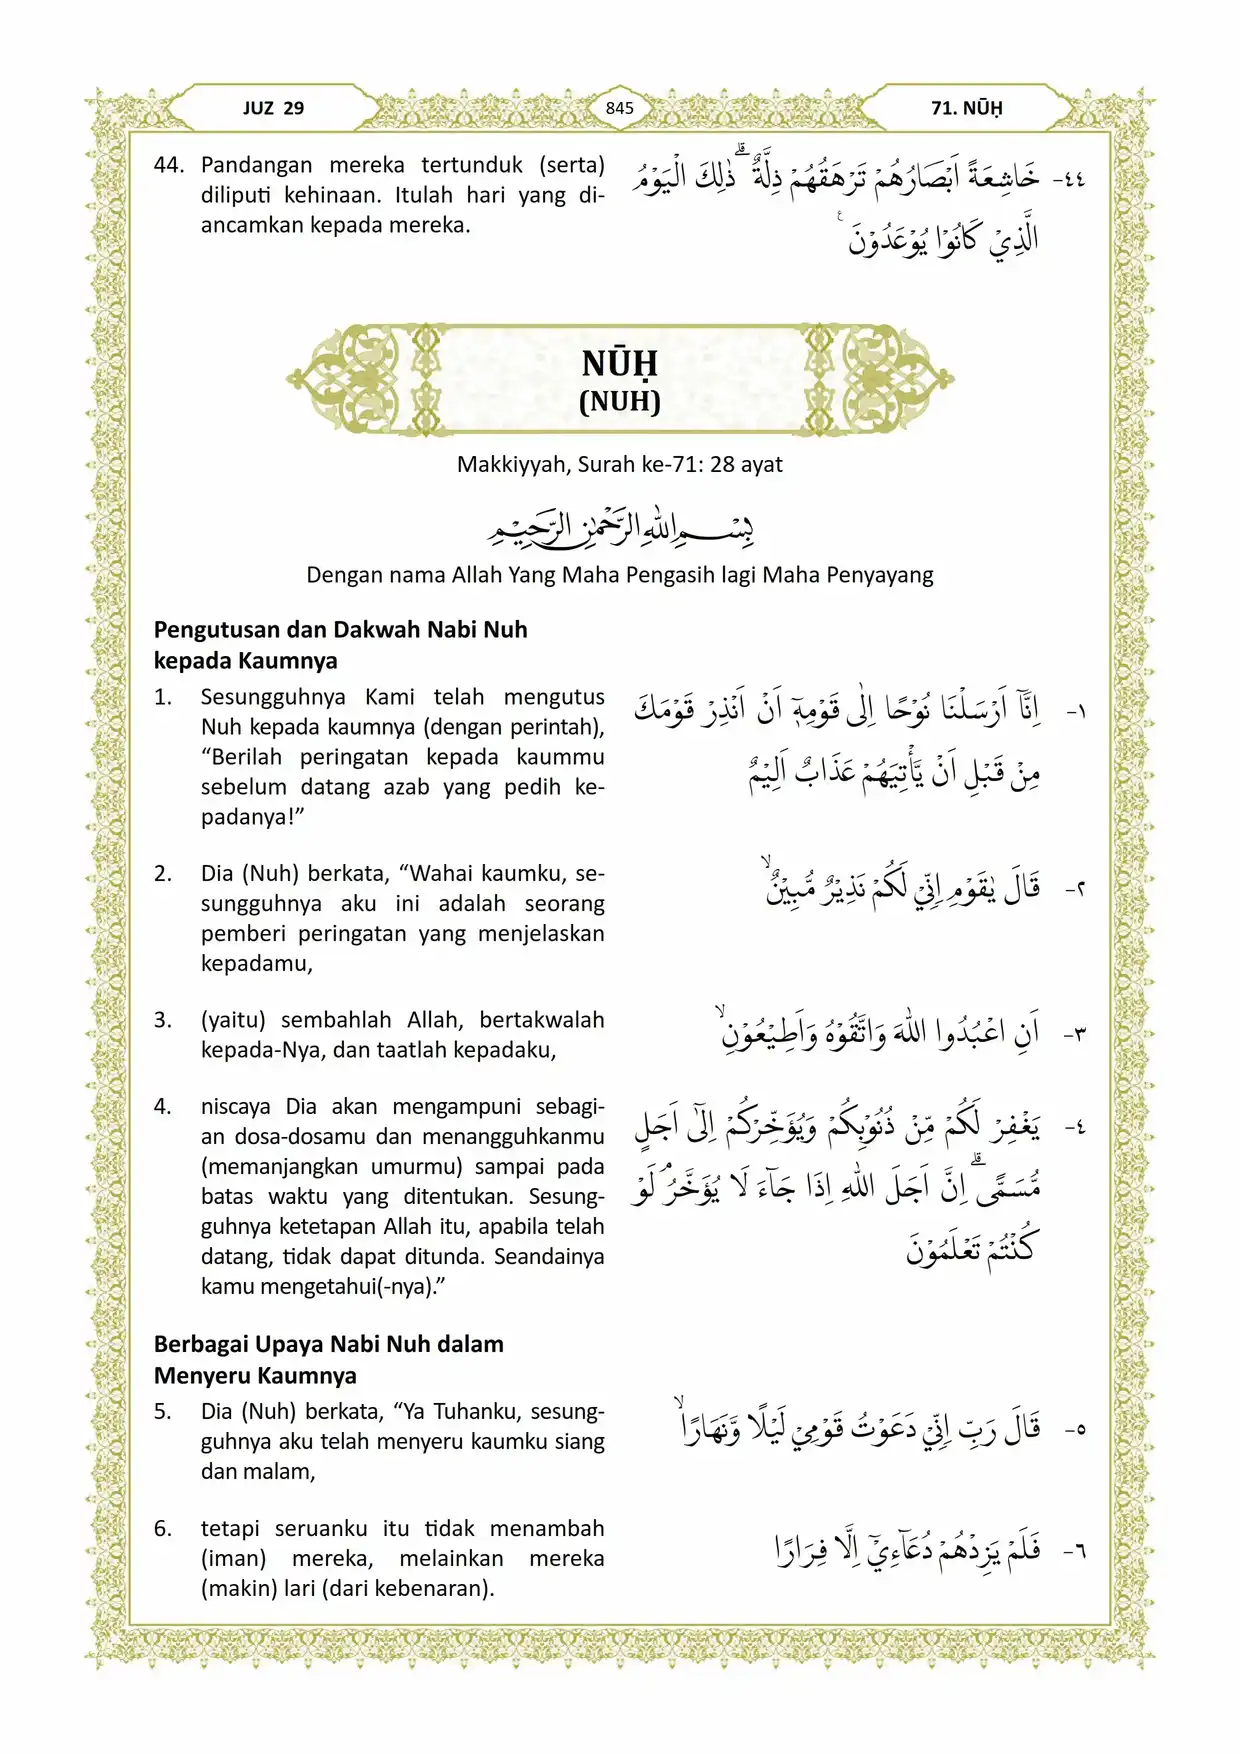 JUZ 29
845
71. NŪḤ
44. Pandangan mereka tertunduk (serta)
diliputi kehinaan. Itulah hari yang di-
ancamkan kepada mereka.
٤٤- خَاشِعَةً اَبْصَارُهُمْ تَرْهَقُهُمْ ذِلَّةٌ ۗذٰلِكَ الْيَوْمُ
الَّذِيْ كَانُوْا يُوْعَدُوْنَ ࣖ
NŪḤ
(NUH)
Makkiyyah, Surah ke-71: 28 ayat
بِسْمِ اللّٰهِ الرَّحْمٰنِ الرَّحِيْمِ
Dengan nama Allah Yang Maha Pengasih lagi Maha Penyayang
Pengutusan dan Dakwah Nabi Nuh
kepada Kaumnya
1. Sesungguhnya Kami telah mengutus
Nuh kepada kaumnya (dengan perintah),
“Berilah peringatan kepada kaummu
sebelum datang azab yang pedih ke-
padanya!”
١- اِنَّآ اَرْسَلْنَا نُوْحًا اِلٰى قَوْمِهٖٓ اَنْ اَنْذِرْ قَوْمَكَ
مِنْ قَبْلِ اَنْ يَّأْتِيَهُمْ عَذَابٌ اَلِيْمٌ
2. Dia (Nuh) berkata, “Wahai kaumku, se-
sungguhnya aku ini adalah seorang
pemberi peringatan yang menjelaskan
kepadamu,
٢- قَالَ يٰقَوْمِ اِنِّيْ لَكُمْ نَذِيْرٌ مُّبِيْنٌۙ
3. (yaitu) sembahlah Allah, bertakwalah
kepada-Nya, dan taatlah kepadaku,
٣- اَنِ اعْبُدُوا اللّٰهَ وَاتَّقُوْهُ وَاَطِيْعُوْنِۙ
4. niscaya Dia akan mengampuni sebagi-
an dosa-dosamu dan menangguhkanmu
(memanjangkan umurmu) sampai pada
batas waktu yang ditentukan. Sesung-
guhnya ketetapan Allah itu, apabila telah
datang, tidak dapat ditunda. Seandainya
kamu mengetahui(-nya).”
٤- يَغْفِرْ لَكُمْ مِّنْ ذُنُوْبِكُمْ وَيُؤَخِّرْكُمْ اِلٰٓى اَجَلٍ
مُّسَمًّىۗ اِنَّ اَجَلَ اللّٰهِ اِذَا جَاۤءَ لَا يُؤَخَّرُۘ لَوْ
كُنْتُمْ تَعْلَمُوْنَ
Berbagai Upaya Nabi Nuh dalam
Menyeru Kaumnya
5. Dia (Nuh) berkata, “Ya Tuhanku, sesung-
guhnya aku telah menyeru kaumku siang
dan malam,
٥- قَالَ رَبِّ اِنِّيْ دَعَوْتُ قَوْمِيْ لَيْلًا وَّنَهَارًاۙ
6. tetapi seruanku itu tidak menambah
(iman) mereka, melainkan mereka
(makin) lari (dari kebenaran).
٦- فَلَمْ يَزِدْهُمْ دُعَاۤءِيْٓ اِلَّا فِرَارًا